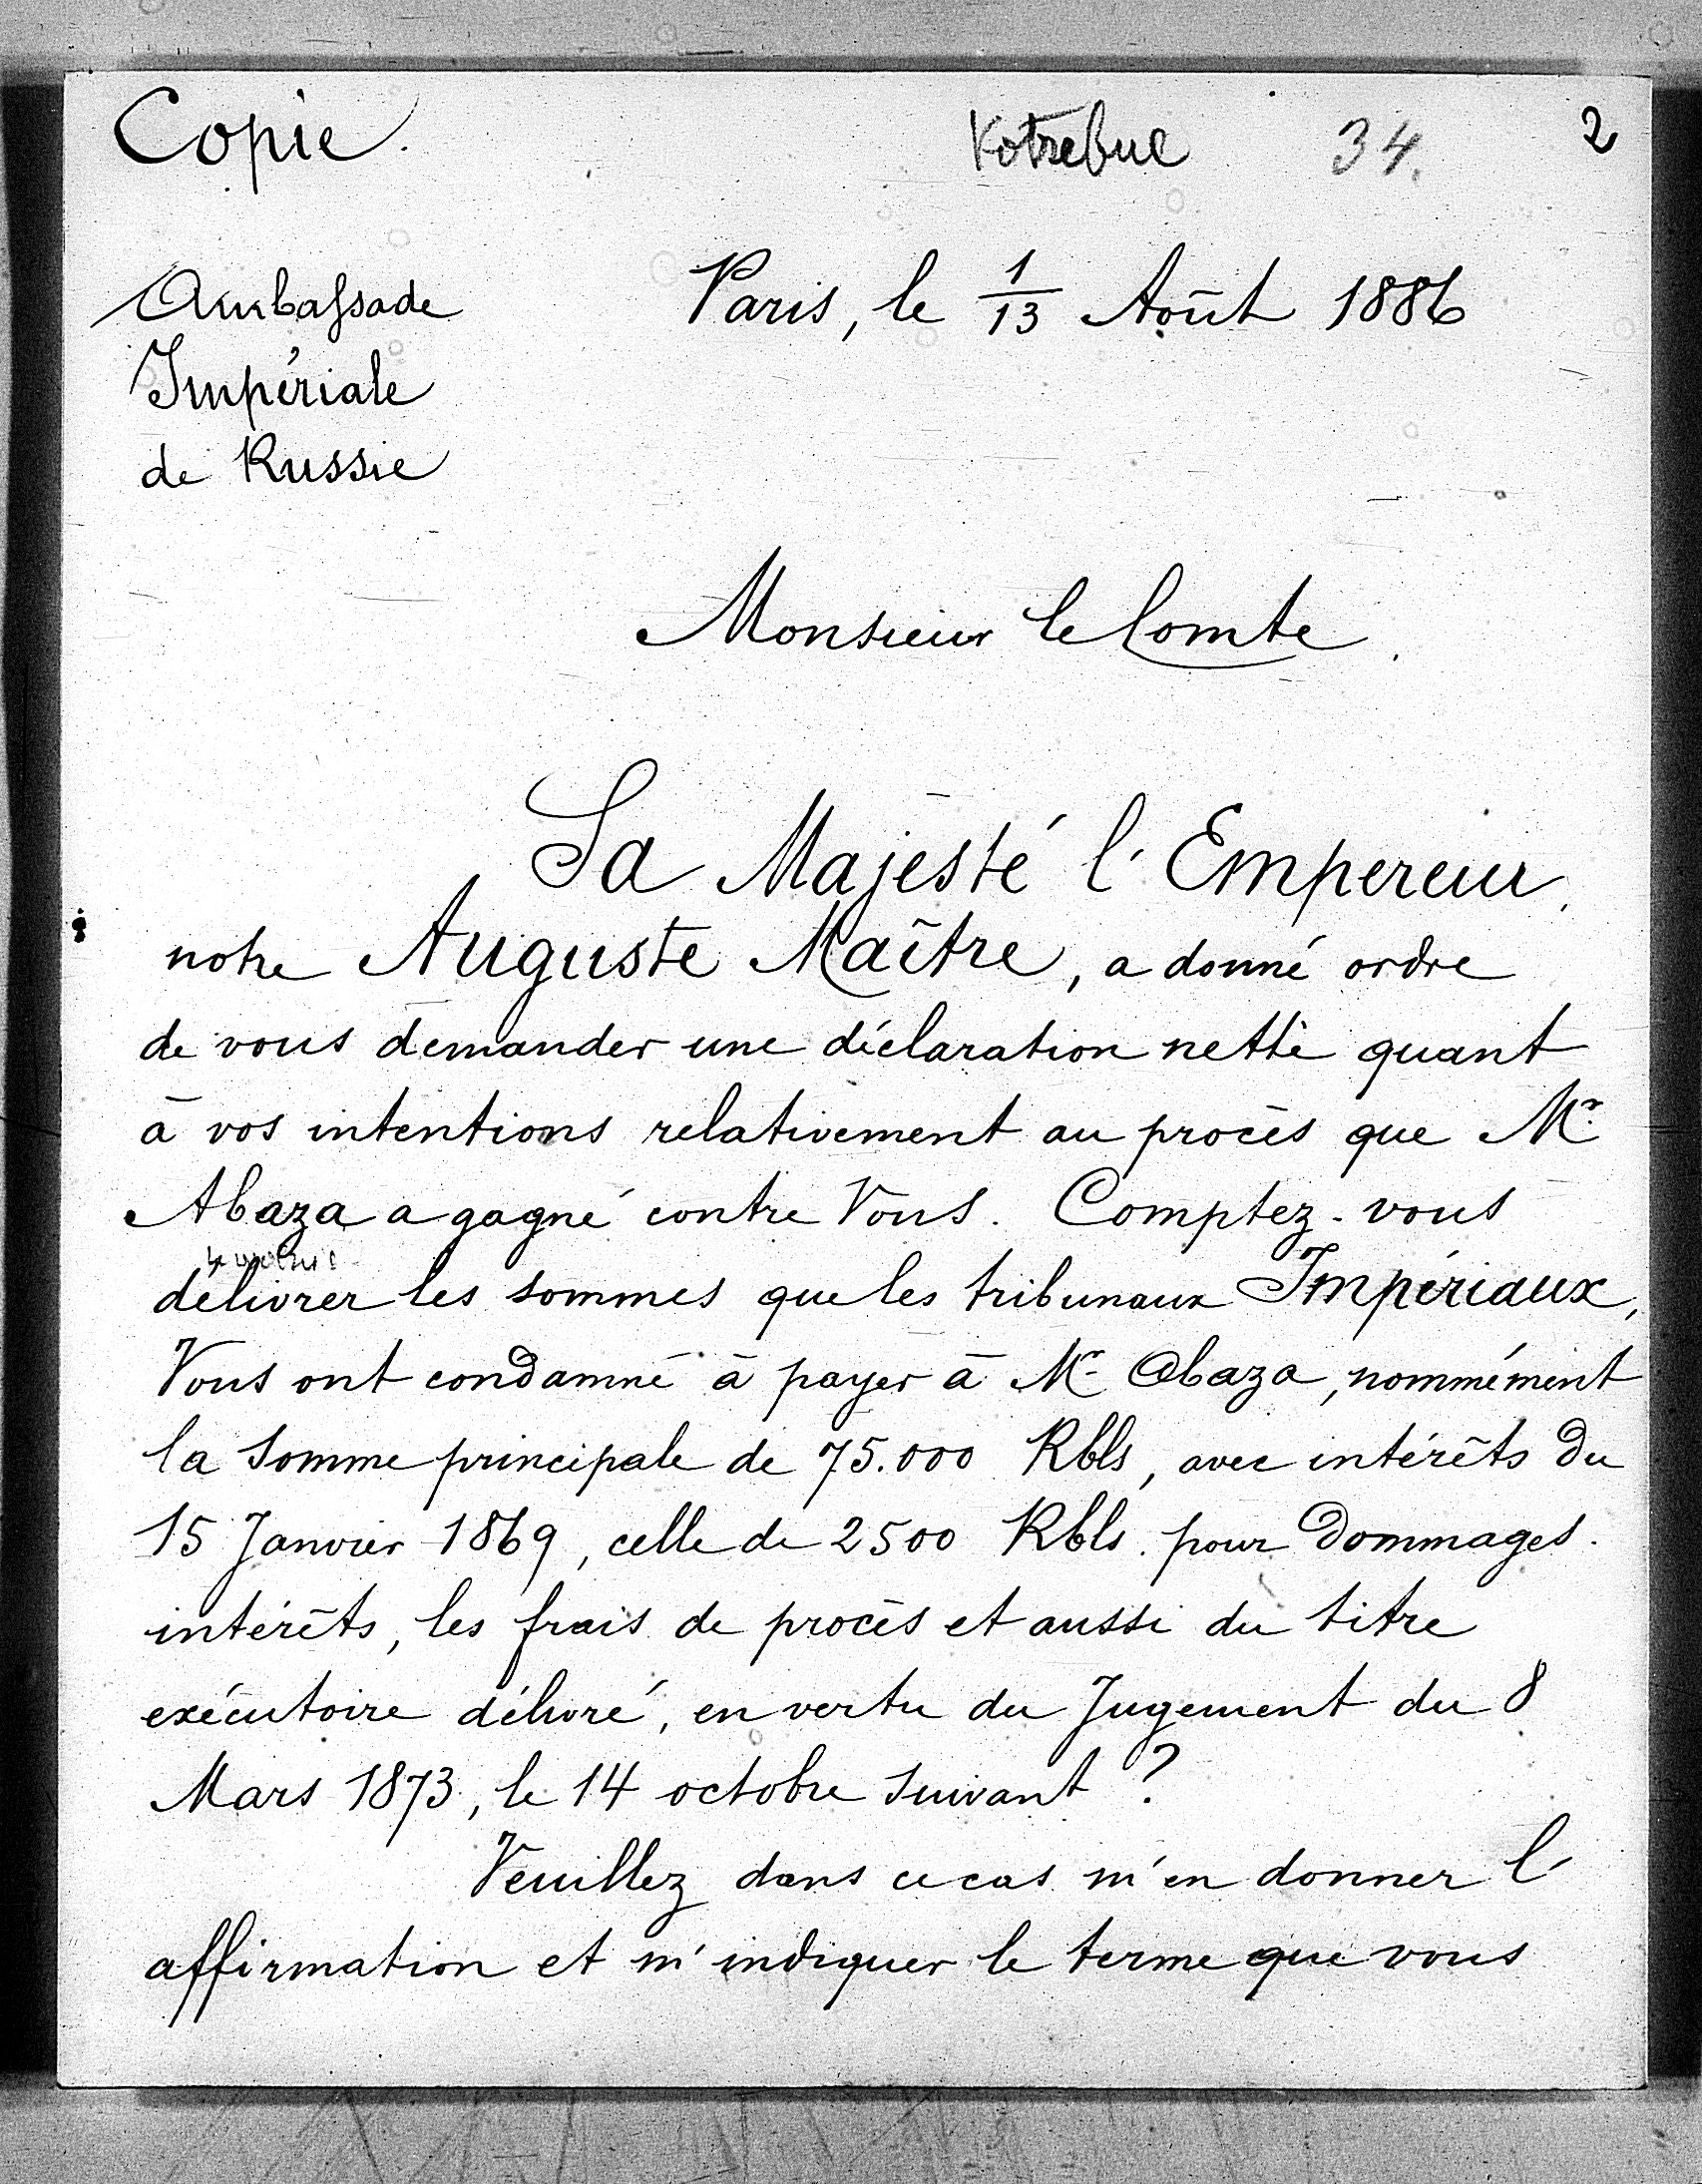 Copie.
Kotzebue 34. 2
Ambassade
Impériale
de Russie
Paris, le 1/13 Août 1886
Monsieur le Comte.
Sa Majesté l'Empereur,
notre Auguste Maître, a donné ordre
de vous demander une déclaration nette quant
à vos intentions relativement au procès que Mr.
Abaza a gagné contre Vous. Comptez-vous
délivrer les sommes que les tribunaux Impériaux,
Vous ont condamné à payer à Mr Abaza, nommément
la somme principale de 75.000 Rbls, avec intérêts du
15 Janvier 1869, celle de 2500 Rbls. pour Dommages.
intérêts, les frais de procès et aussi du titre
exécutoire délivré, en vertu du Jugement du 8
Mars 1873, le 14 octobre suivant ?
Veuillez dans ce cas m'en donner l'
affirmation et m'indiquer le terme que vous